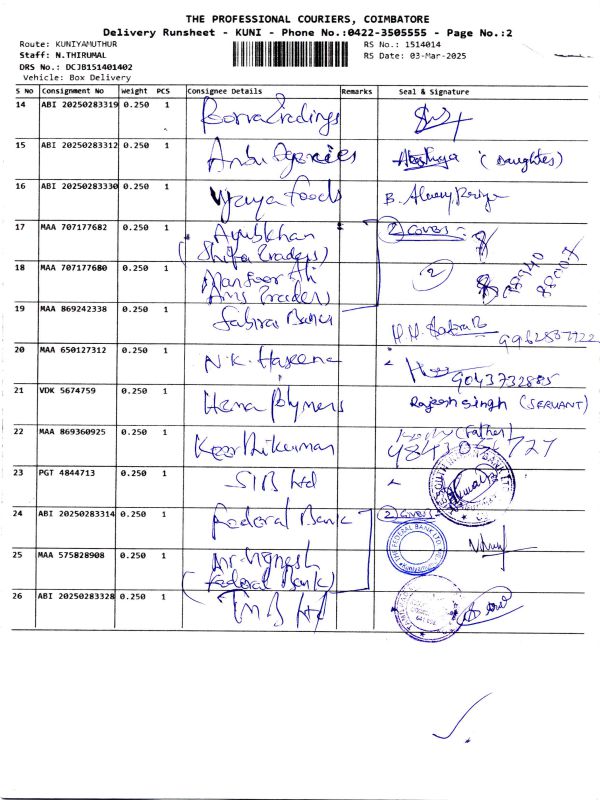 THE PROFESSIONAL COURIERS, COIMBATORE
Delivery Runsheet - KUNI - Phone No.:0422-3505555 - Page No.:2
Route: KUNIYAMUTHUR
Staff: N.THIRUMAL
DRS No.: DCJB151401402
Vehicle: Box Delivery
RS No.: 1514014
RS Date: 03-Mar-2025
S No Consignment No Weight PCS Consignee Details Remarks Seal & Signature
14 ABI 20250283319 0.250 1 Borra Tradings
15 ABI 20250283312 0.250 1 Anbu Agencies (Daughter)
16 ABI 20250283330 0.250 1 Foods B.
17 MAA 707177682 0.250 1 Ayubkhan 2 covers
(Shifa Traders)
18 MAA 707177680 0.250 1 Mansoor Ali 2
Ams Traders)
19 MAA 869242338 0.250 1 Sabira Banu H.H. 9962887922
20 MAA 650127312 0.250 1 N.K. Haseena 9043732885
21 VDK 5674759 0.250 1 Hema Polymers Rajesh Singh (SERVANT)
22 MAA 869360925 0.250 1 Keerthikumar (Father)
23 PGT 4844713 0.250 1 SIB Ltd
24 ABI 20250283314 0.250 1 Federal Bank 2 covers
25 MAA 575828908 0.250 1 Mr. Vignesh THE FEDERAL BANK LTD
(Federal Bank)
26 ABI 20250283328 0.250 1 TMB Ltd